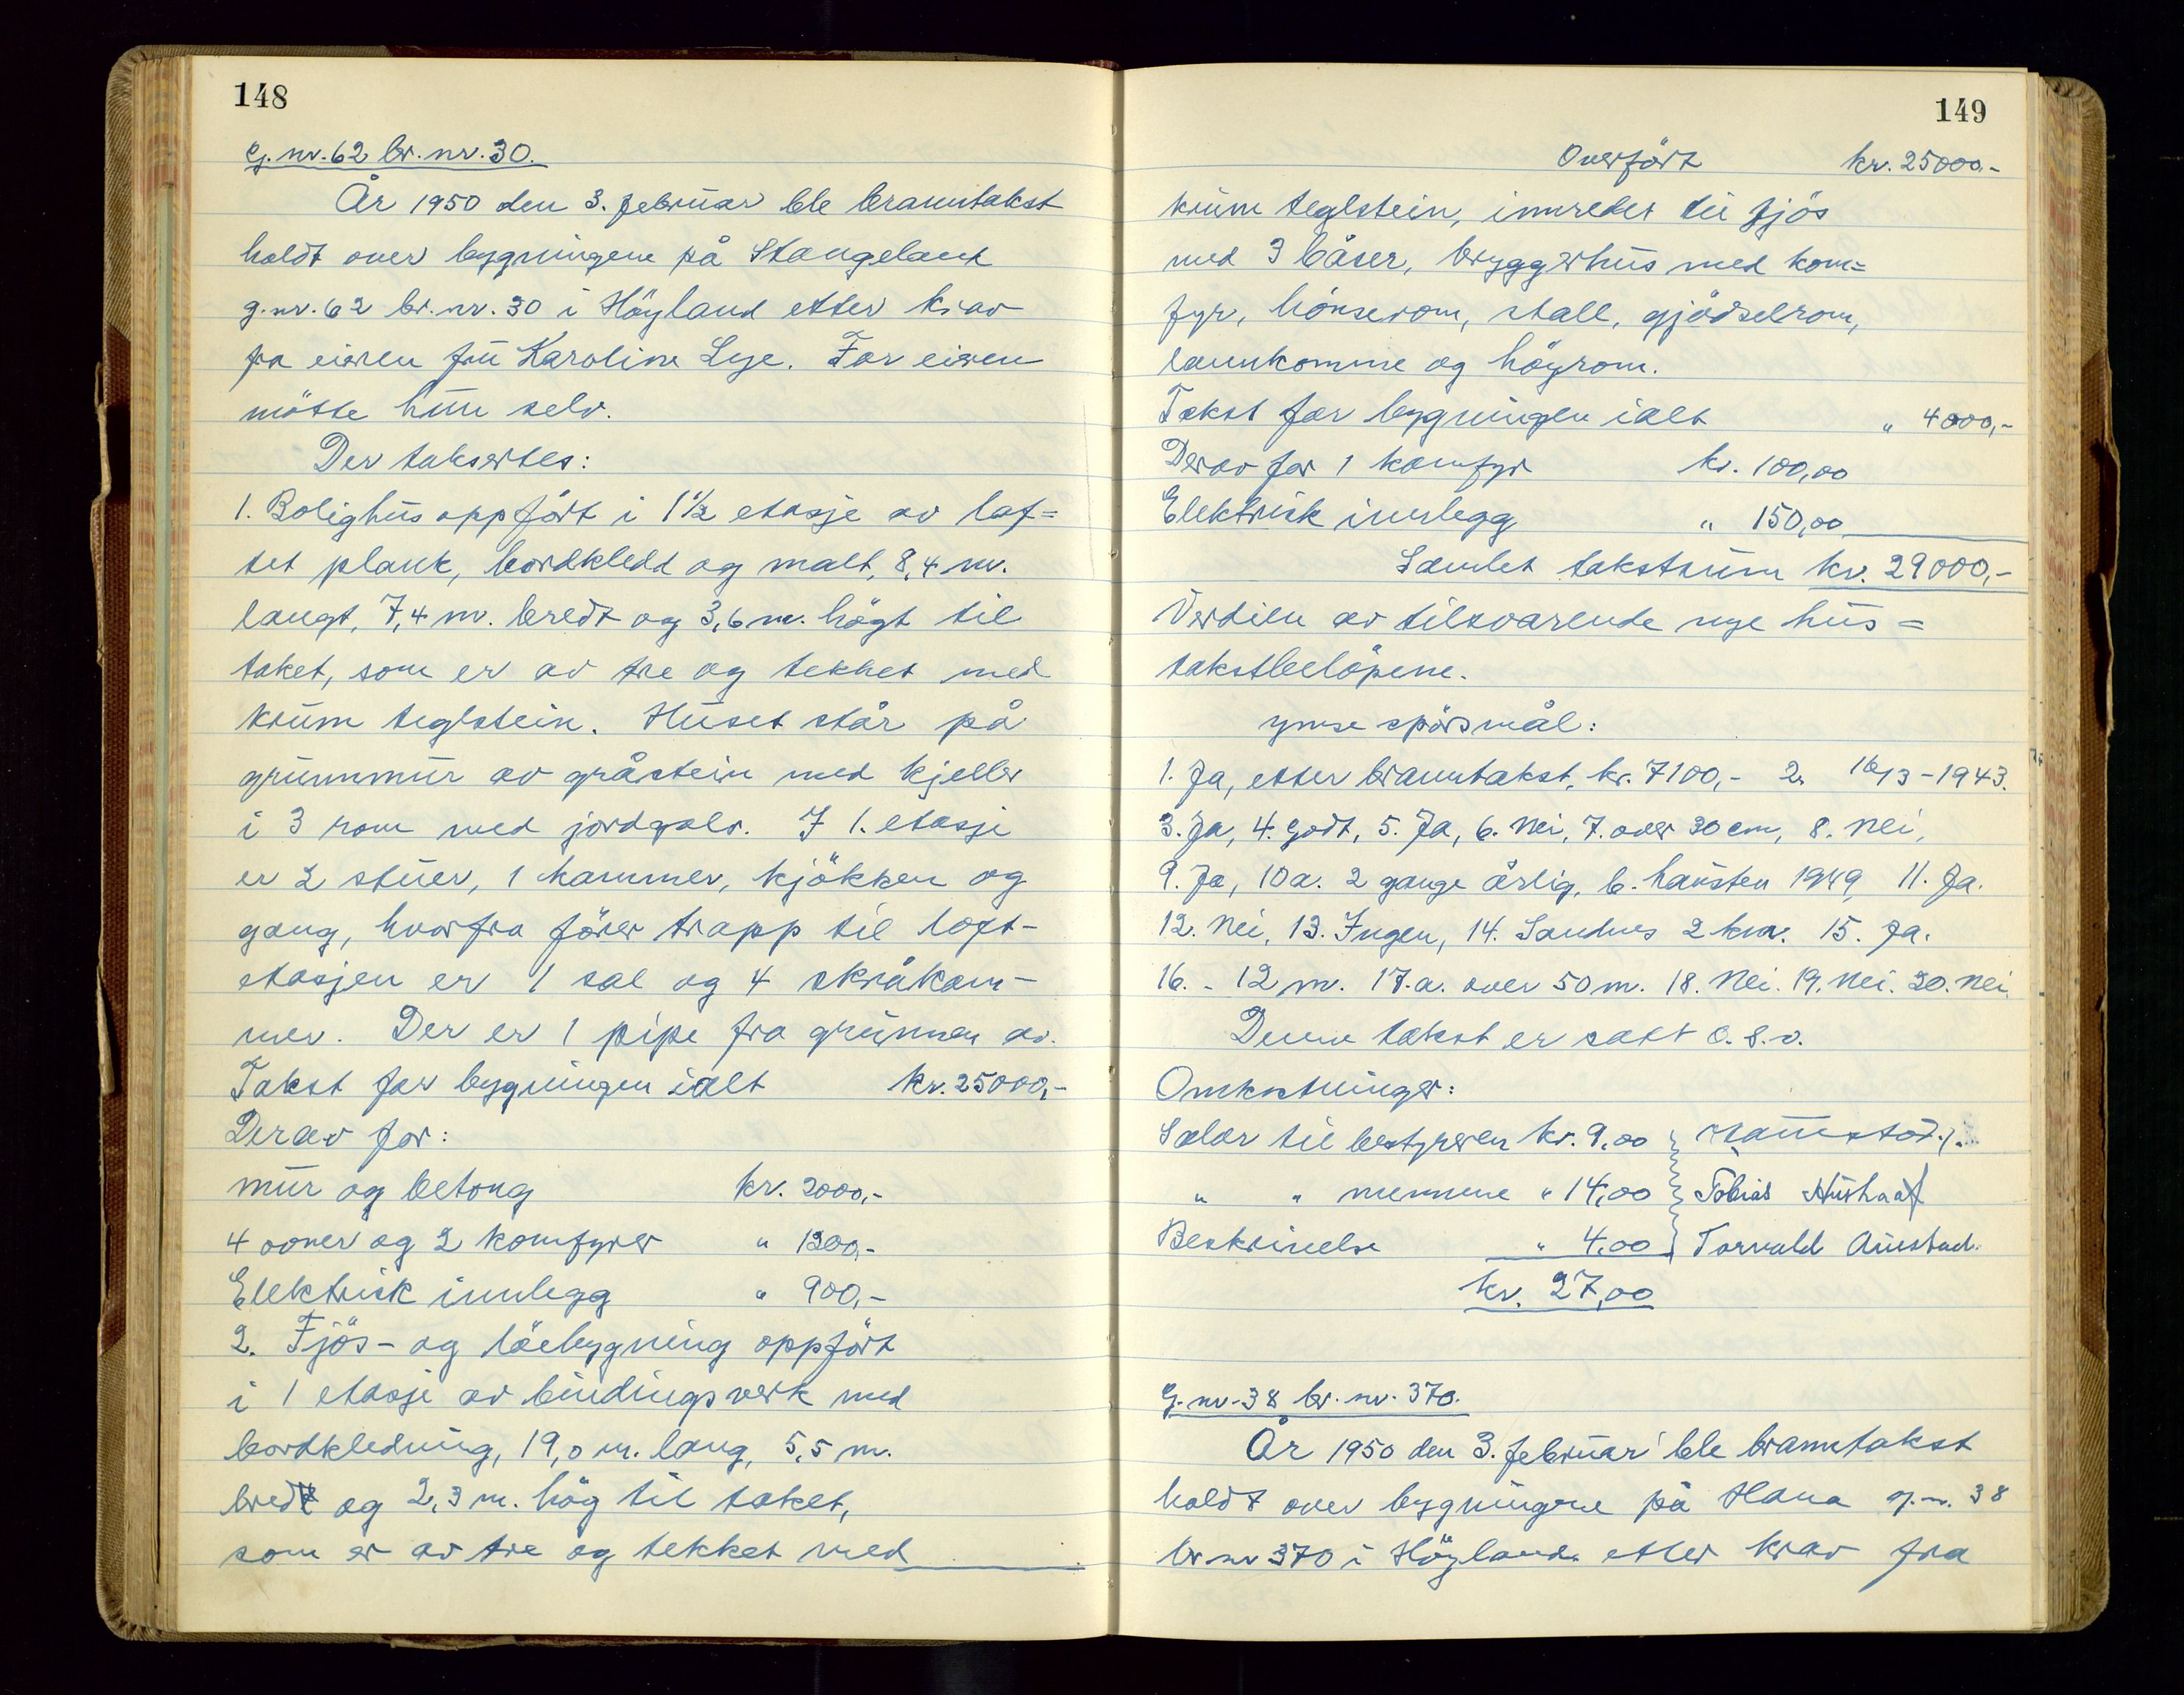 148
G. nr. 62 br. nr. 30.
År 1950 den 3. februar ble branntakst
holdt over bygningene på Stangeland
g. nr. 62 br. nr. 30 i Höyland etter krav
fra eieren fru Karoline Lye. For eieren
mötte hun selv.
Der taksertes:
1. Bolighus oppfört i 1½ etasje av laf=
tet plank, bordkledd og malt, 8,4 m.
langt, 7,4 m. bredt og 3,6 m. högt til
taket, som er av tre og tekket med
krum teglstein. Huset står på
grunnmur av gråstein med kjeller
i 3 rom med jordgolv. I 1. etasje
er 2 stuer, 1 kammer, kjökken og
gang, hvorfra förer trapp til loft-
etasjen er 1 sal og 4 skråkam-
mer. Der er 1 pipe fra grunnen av.
Takst for bygningen ialt kr. 25000,-
Derav for:
mur og betong kr. 2000,-
4 ovner og 2 komfyrer " 1200,-
Elektrisk innlegg " 900,-
2. Fjös- og löebygning oppfört
i 1 etasje av bindingsverk med
bordkledning, 19,0 m. lang, 5,5 m.
bred og 2,3 m. hög til taket,
som er av tre og tekket med
149
Overfört kr. 25000,-
krum teglstein, innredet til fjös
med 3 båser, bryggerhus med kom=
fyr, hönserom, stall, gjödselrom,
lannkomme og höyrom.
Takst for bygningen ialt " 4000,-
Derav for 1 komfyr kr. 100,00
Elektrisk innlegg " 150,00
Samlet takstsum kr. 29000,-
Verdien av tilsvarende nye hus =
takstbelöpene.
ymse spörsmål:
1. Ja, etter branntakst, kr. 7100,- 2. 16/3-1943.
3. Ja, 4. Godt, 5. Ja, 6. Nei, 7. over 30 cm, 8. Nei,
9. Ja, 10 a. 2 gange årlig, b. hausten 1949, 11. Ja.
12. Nei, 13. Ingen, 14. Sandnes 2 km. 15. Ja.
16. - 12 m. 17. a. over 50 m. 18. Nei. 19. Nei. 20. Nei.
Denne takst er satt o. s. v.
Omkostninger:
Salær til bestyreren kr. 9,00
" " mennene " 14,00 Tobias
Beskrivelse " 4,00 Torvald Austad.
kr. 27,00
G. nr. 38 br. nr. 370.
År 1950 den 3. februar ble branntakst
holdt over bygningene på Hana g. nr. 38
br nr 370 i Höyland. etter krav fra